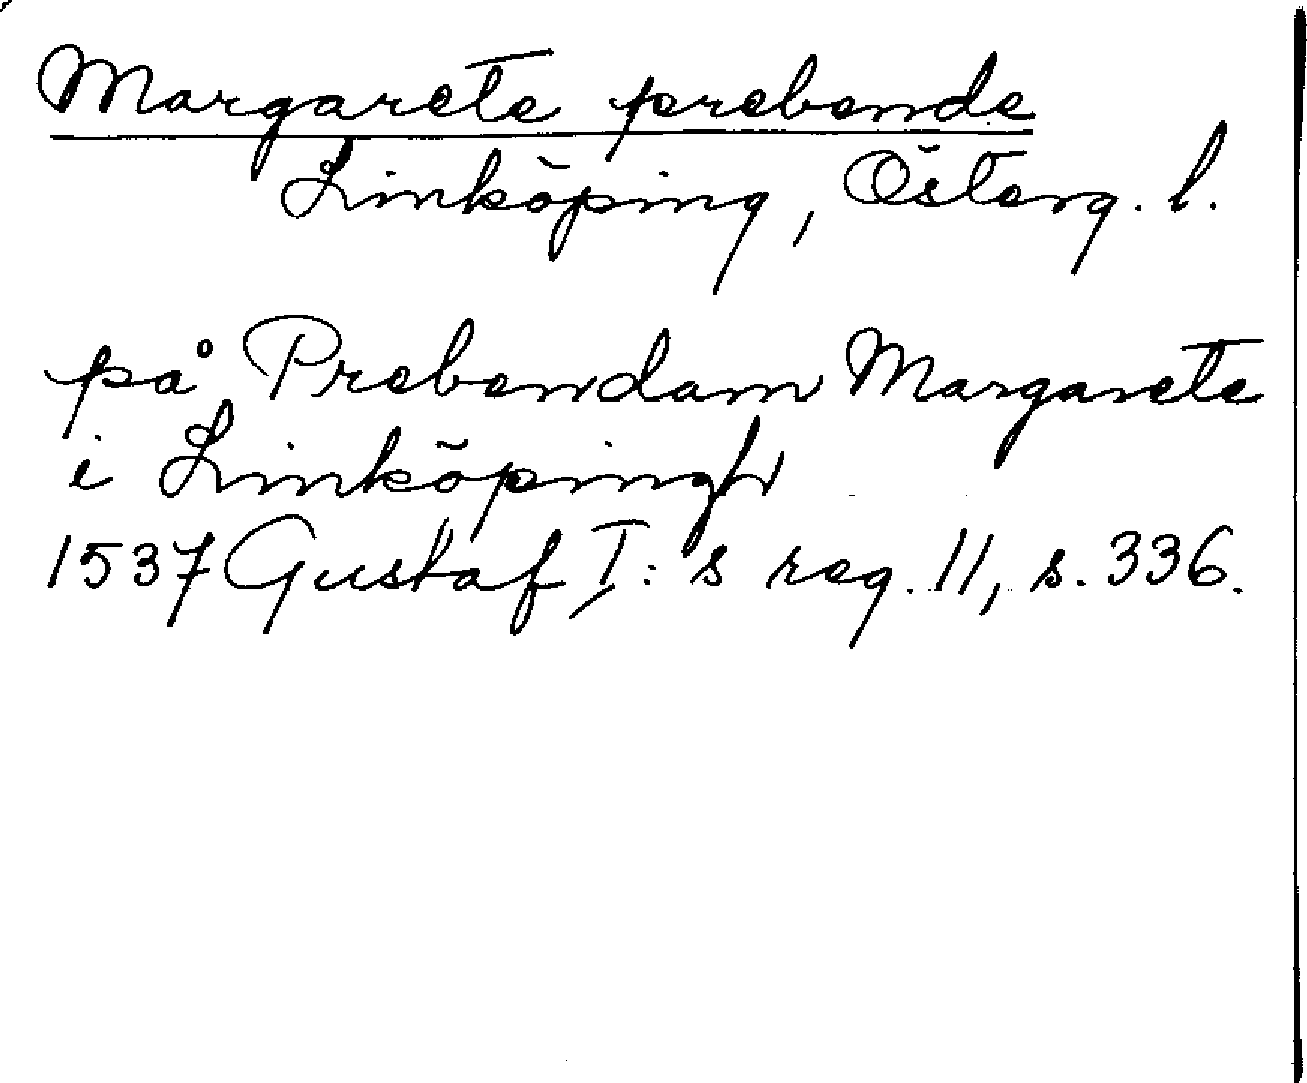 Margarete prebende
Linköping, Österg. l.
på Prebendam Margarete
i Linköpingh
1537 Gustaf I:s reg. 11, s. 336.